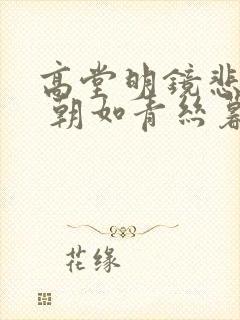 高堂明镜悲
朝如青丝暮
花缘